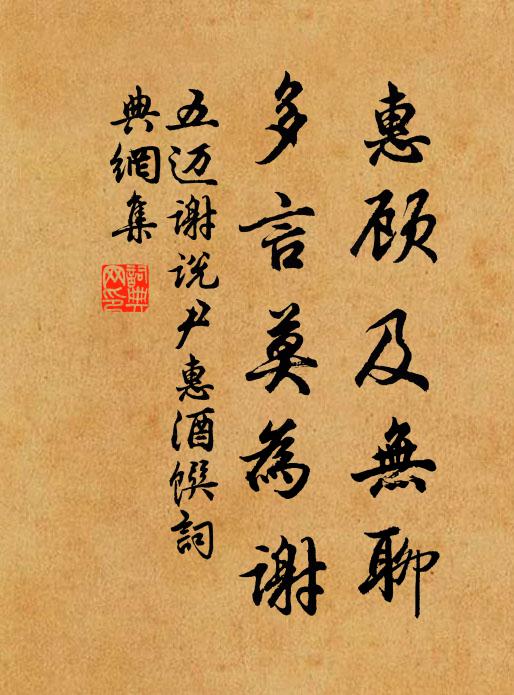 惠顾及無聊
多言莫為谢
五迈谢说尹惠酒馔詞
典網集
詞典网印